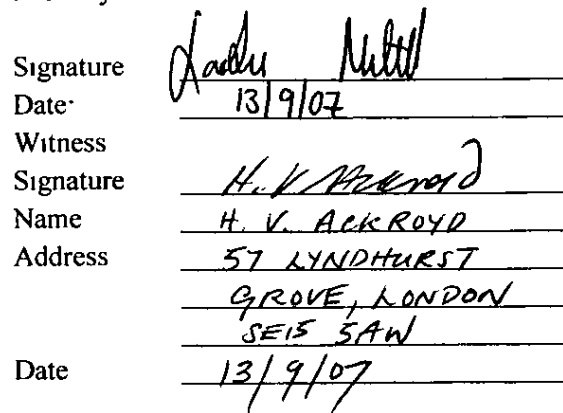 Signature
Date 13/9/07
Witness
Signature H. V. Ackroyd
Name H. V. ACKROYD
Address 57 LYNDHURST
GROVE, LONDON
SE15 5AW
Date 13/9/07